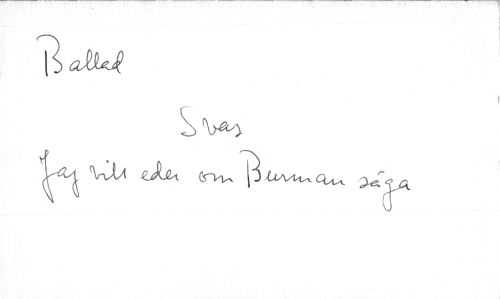 Ballad
Svar
Jag vill eder om Burman säga